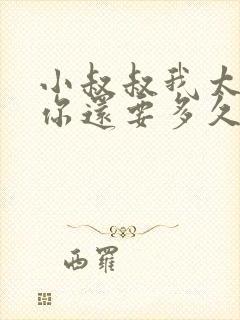 小叔叔我大
你還要多久
西羅